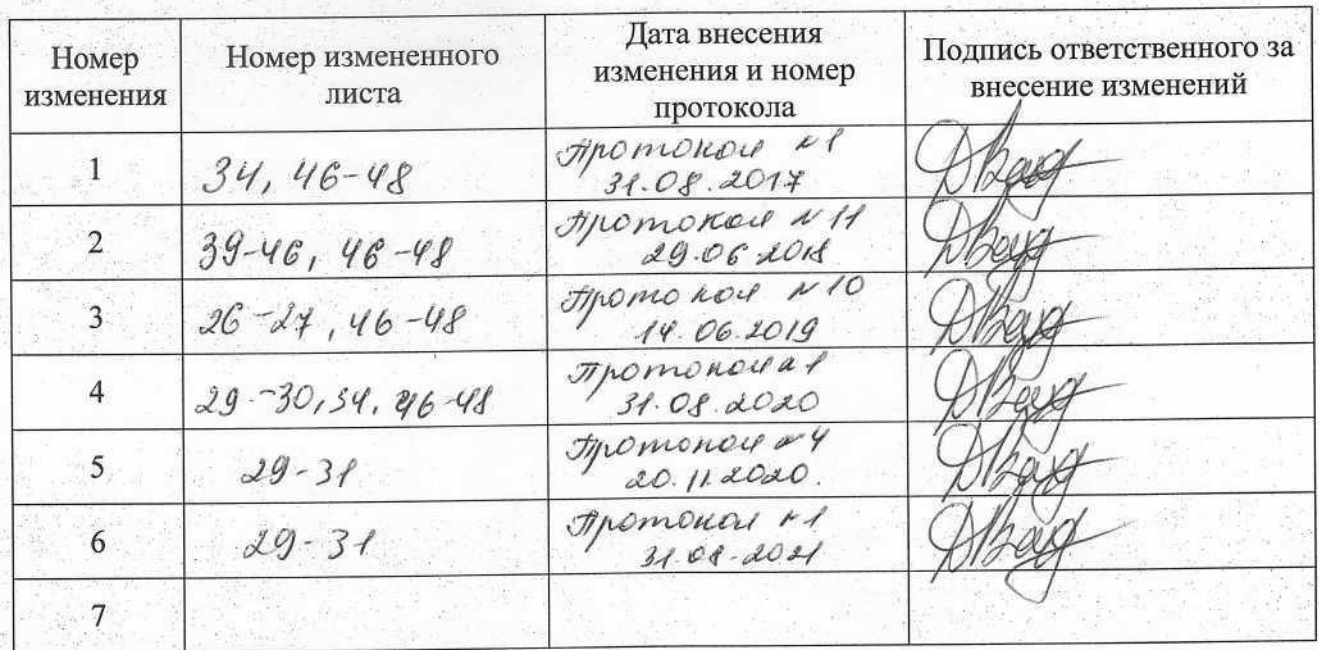 Номер изменения
Номер измененного листа
Дата внесения изменения и номер протокола
Подпись ответственного за внесение изменений
1
34, 46-48
Протокол №1
31.08.2017
2
39-46, 46-48
Протокол №11
29.06.2018
3
26-27, 46-48
Протокол №10
14.06.2019
4
29-30, 34, 46-48
Протокол №1
31.08.2020
5
29-31
Протокол №4
20.11.2020.
6
29-31
Протокол №1
31.08.2021
7